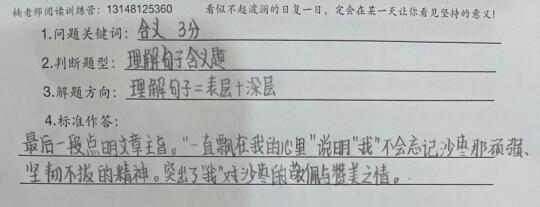 楠老师阅读训练营:13148125360 看似不起波澜的日复一日,定会在某一天让你看见坚持的意义!
1.问题关键词:含义 3分
2.判断题型:理解句子含义题
3.解题方向:理解句子=表层+深层
4.标准作答:
最后一段点明文章主旨。"一直飘在我的心里"说明"我"不会忘记沙枣那顽强、
坚韧不拔的精神。突出了"我"对沙枣的敬佩与赞美之情。